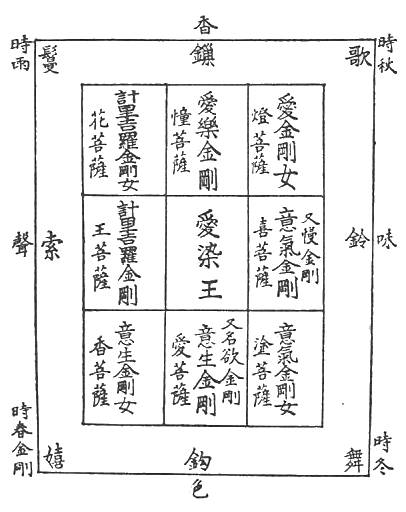 香
時雨
鬘
鎖
歌
時秋
愛金剛女
燈菩薩
愛樂金剛
憧菩薩
計里吉羅金剛女
花菩薩
聲
索
又慢金剛
意氣金剛
喜菩薩
愛染王
計里吉羅金剛
王菩薩
鈴
味
意氣金剛女
塗菩薩
又名欲金剛
意生金剛
愛菩薩
意生金剛女
香菩薩
時春金剛
嬉
鈎
舞
時冬
色